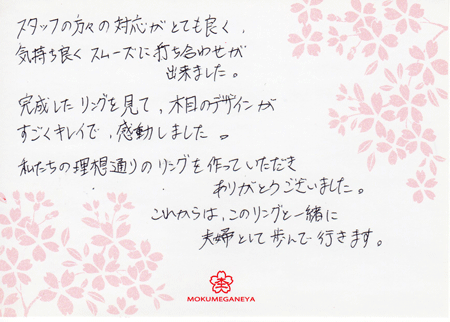 スタッフの方々の対応がとても良く、
気持ち良くスムーズに打ち合わせが
出来ました。
完成したリングを見て、木目のデザインが
すごくキレイで、感動しました。
私たちの理想通りのリングを作っていただき
ありがとうございました。
これからは、このリングと一緒に
夫婦として歩んで行きます。
MOKUMEGANEYA